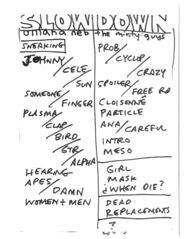 SLOWDOWN
uiliana neo the minty guys
SNEAKING
JOHNNY/
CELE/
SUN
SOMEONE/
FINGER
PLASMA/
CLAP/
BIRD/
GTR/
ALPHA
HEARING
APES/
DAMN
WOMEN+MEN
PROB/
CYCLOP/
CRAZY
SPOILER/
FREE RD
CLOISENNÉ
PARTICLE
ANA/
CAREFUL
INTRO
MESO
GIRL
MASK
¿WHEN DIE?
DEAD
REPLACEMENTS
?